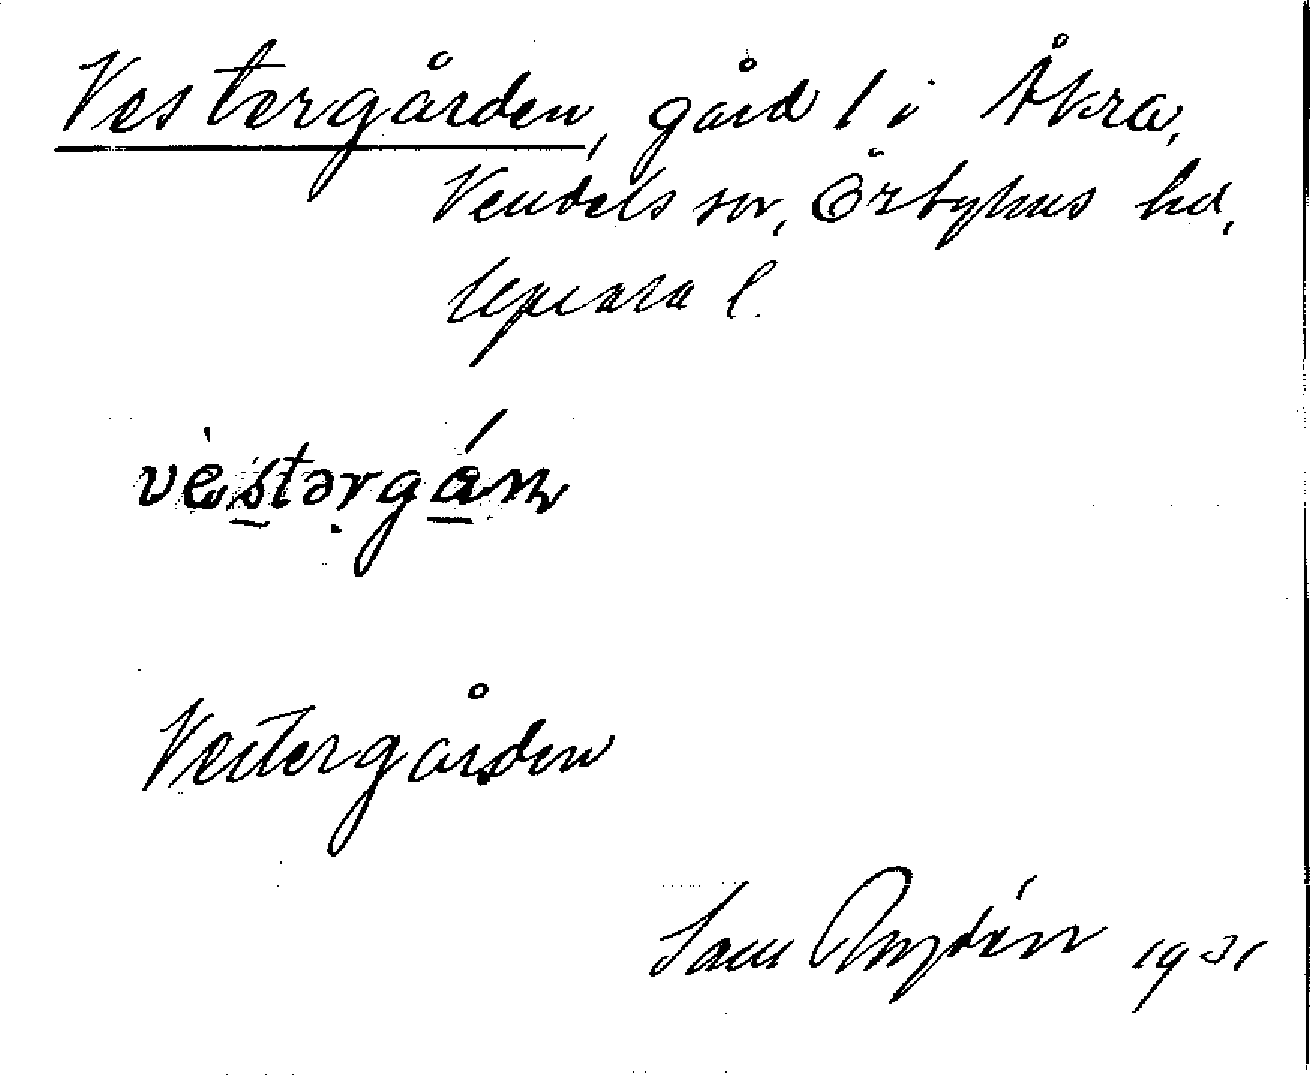 Vestergården, gård 1 i Åkra,
Vendels sn, Örbyhus hd,
Uppsala l.
vèstərgán
Vestergården
Sam 1931